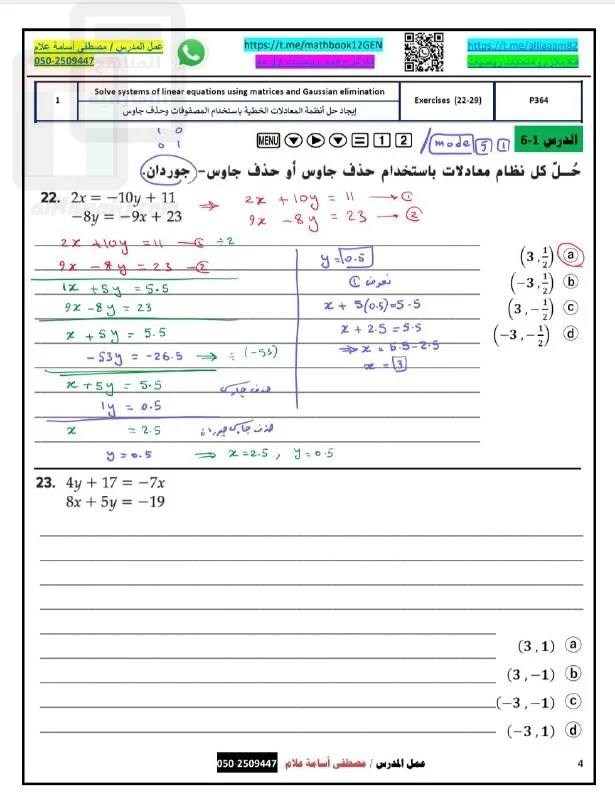 عمل المدرس / مصطفي أسامة علام
050-2509447
https://t.me/mathbook12GEN
https://t.me/alliaaam82
1
Solve systems of linear equations using matrices and Gaussian elimination
إيجاد حل أنظمة المعادلات الخطية باستخدام المصفوفات وحذف جاوس
Exercises (22-29)
P364
1 0
0 1
MENU = 1 2 / mode 5 1
الدرس 1-6
حُـــلّ كل نظام معادلات باستخدام حذف جاوس أو حذف جاوس- جوردان.
22. 2x = −10y + 11
−8y = −9x + 23
⇒ 2x + 10y = 11 → ①
9x − 8y = 23 → ②
2x + 10y = 11 — ① ÷2
9x − 8y = 23 — ②
1x + 5y = 5.5
9x − 8y = 23
x + 5y = 5.5
− 53y = −26.5 ⇒ ÷ (−53)
x + 5y = 5.5
1y = 0.5
حذف جاوس
x = 2.5
حذف جاوس جوردان
y = 0.5 ⇒ x = 2.5 , y = 0.5
y = 0.5
نعوض ①
x + 5(0.5) = 5.5
x + 2.5 = 5.5
⇒ x = 5.5 − 2.5
x = 3
(3 , 1/2) a
(−3 , 1/2) b
(3 , −1/2) c
(−3 , −1/2) d
23. 4y + 17 = −7x
8x + 5y = −19
(3 , 1) a
(3 , −1) b
(−3 , −1) c
(−3 , 1) d
عمل المدرس / مصطفى أسامة علام
050-2509447
4